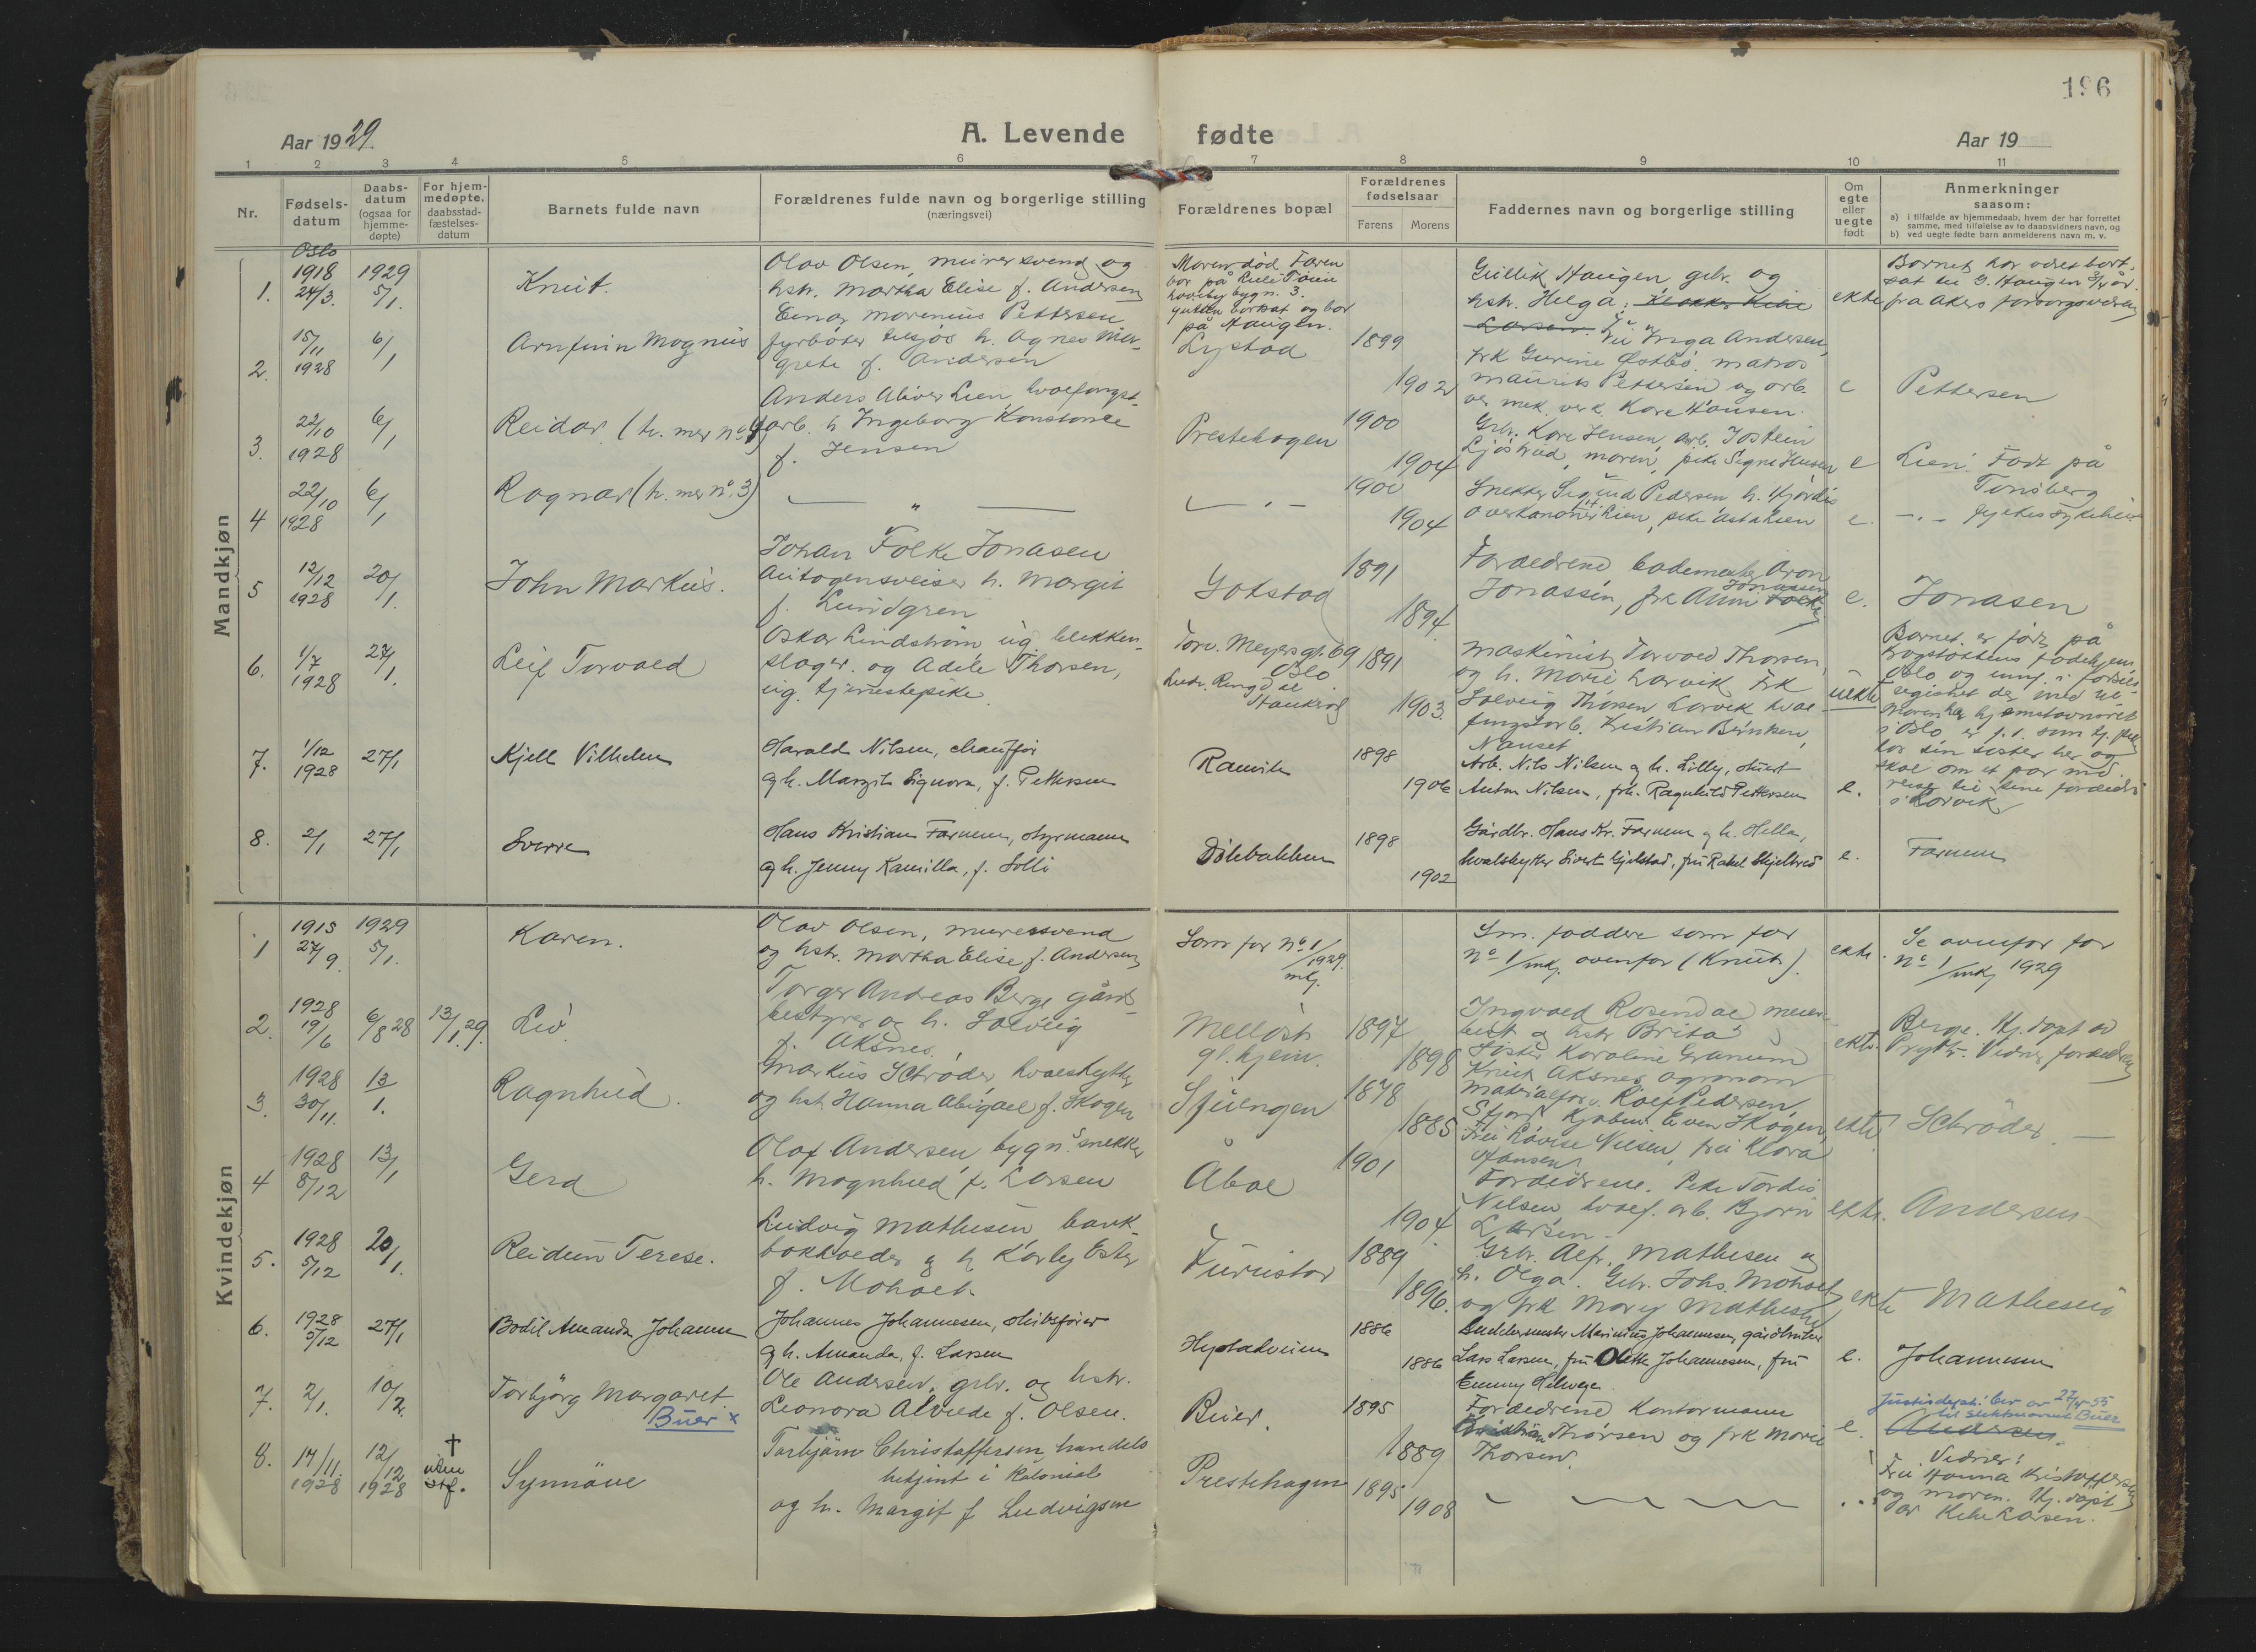 196
Aar 1929.
A. Levende fødte
Aar 19
1 2 3 4 5 6 7 8 9 10 11
Nr.
Fødsels-
datum
Daabs-
datum
(ogsaa for
hjemme-
døpte)
For hjem-
medøpte,
daabsstad-
fæstelses-
datum
Barnets fulde navn
Forældrenes fulde navn og borgerlige stilling
(næringsvei)
Forældrenes bopæl
Forældrenes
fødselsaar
Farens Morens
Faddernes navn og borgerlige stilling
Om
egte
eller
uegte
født
Anmerkninger
saasom:
a) i tilfælde av hjemmedaab, hvem der har forrettet
samme, med tilføielse av to daabsvidners navn, og
b) ved uegte fødte barn anmelderens navn m. v.
Mandkjøn
1.
Oslo
1918
24/3.
1929
5/1.
Knut.
Olav Olsen, murersvend og
hstr. Martha Elise f. Andersen
Moren død. Faren
bor på Lille Tøien
haveby bygn. 3.
gutten bortsat og bor
på Haugen.
Gullik Haugen, gbr. og
hstr. Helga.
ekte
Barnet har været bort-
sat til G. Haugen
fra Akers forsorgsvesen
2.
15/11
1928
6/1
Arnfinn Magnus
Einar Marenius Pettersen
fyrbøter tilsjøs h. Agnes Mar-
grete f. Andersen
Lystad
1899
1902
Fru Inga Andersen,
frk Gurine Østbø. matros
Maurits Pettersen og arb.
ver mek. verk. Kåre Hansen.
e
Pettersen
3.
22/10
1928
6/1
Reidar (tv. mer no 4)
Anders Oliver Lien, hvalfangst-
arb. h Ingeborg Konstanse
f. Jensen
Prestehagen
1900
1904
Grbr. Kåre Jensen, arb. Jostein
moren, pike Signe Hansen
e
Lien. Født på
Tønsberg
4
22/10
1928
6/1
Ragnar (tv. mer no 3)
— " —
— " —
1900
1904
Snekker Sigurd Pedersen h. Hjørdis
Lien, pike Asta Lien
e.
— " — fylkes sykehus
5
12/12
1928
20/1.
John Markus.
Johan Folke Jonasen
Autogensveiser h. Margit
f. Lundgren
Gokstad
1891
1894.
Foreldrene bademester Aron
Jonassen, frk Anni Jonassen
e.
Jonasen
6.
1/7
1928
27/1.
Leif Torvald
Oskar Lindstrøm ug. blikken-
slager. og Adele Thorsen,
ug. tjenestepike.
Torv. Meyersgt. 69
Oslo.
1891
1903.
Maskinist Torvald Thorsen,
og h. Marie Larvik Frk
Solveig Thorsen Larvik hval-
fangstarb. Kristian Brinken,
Nanset
uekte
Barnet er født på
fødehjem
Oslo og innf. i fødsels-
registret der
Moren har hjemstavnsret
i Oslo, er f. t. som tj.
hos sin søster her og
skal om et par md.
reise til sine foreldre
i Larvik
7.
1/12
1928
27/1
Kjell Vilhelm
Harald Nilsen, chauffør
og h. Margit Signora, f. Pettersen
Ranvik
1898
1906
Arb. Nils Nilsen og h. Lilly, stuert
Anton Nilsen, frk. Ragnhild Pettersen
e.
8.
2/1
27/1
Sverre
Hans Kristian Farmen, styrmann
og h. Jenny Kamilla, f. Solli
Dølebakken
1898
1902
Gårdbr. Hans Kr. Farmen og h. Hella,
hvalskytter Sivert Gjelstad, fru Rakel Skjelbred
e.
Farmen
Kvindekjøn
1
1915
27/9.
1929
5/1.
Karen.
Olav Olsen, murersvend
og hstr. Martha Elise f. Andersen
Som for No 1/1929.
mkj.
Sm. faddere som for
No 1/mkj. ovenfor (Knut).
ekte.
Se ovenfor for
No 1/mkj 1929
2.
1928
19/6
6/8 28
13/1.29.
Liv.
Torger Andreas Berge gårds-
bestyrer og h. Solveig
f. Aksnes.
Melløst
gl.hjem.
1897
1898
Ingvald Rosendal
og hstr Brita
Søster Karoline Granum
Knut Aksnes agronom
ekte.
Berge. Hj. døpt av
Vidner foreldrene
3.
1928
30/11.
13/1.
Ragnhild.
Markus Schrøder, hvalskytter
og hst. Hanna Abigael f. Skogen
1878
1885
Materialforv. Rolf Pedersen,
Sfjord Kjøbm. Even Skogen,
Fru Lovise Nilsen, fru Klara
Hansen
ekte
Schrøder. —
4
1928
8/12
13/1
Gerd
Olaf Andersen bygn.snekker
h. Magnhild f. Larsen
Åbol
1901
1904
Foreldrene. Pike Tordis
Nilsen hvalf. arb. Bjørn
Larsen —
ekte.
Andersen —
5.
1928
5/12
20/1.
Reidun Terese.
Ludvig Mathisen bank-
bokholder og h Karly Ester
f. Moholt.
Furustad
1889
1896.
Grbr. Alfr. Mathisen og
h. Olga. Gbr. Johs. Moholt
og frk Mary Mathisen
ekte
Mathisen
6.
1928
5/12
27/1
Bodil Amanda Johanne
Johannes Johannesen, skibsfører
og h. Amanda, f. Larsen
Hystadveien
1886
1886
Marinius Johannesen, gårdbruker
Lars Larsen, fru Olette Johannesen, fru
Emmy Helvege
e.
Johannesen
7.
2/1.
10/2.
Torbjørg Margaret.
Buer x
Ole Andersen, grbr. og hstr.
Leonora Alvilde f. Olsen.
Buer.
1895
1889
Foreldrene Kontormann
Thorsen og frk Marie
Thorsen.
e.
Justisdept. bev av 27/4-55
til slektsnavnet Buer
Andersen.
8.
14/11.
1928
12/12
1928
†
uten
stf.
Synnøve
Torbjørn Christoffersen, handels
betjent i Kolonial
og h. Margit f Ludvigsen
Prestehagen
1895
1908
Vidner:
Fru Hanna Kristoffersen
og moren. Hj. døpt
av Larsen.